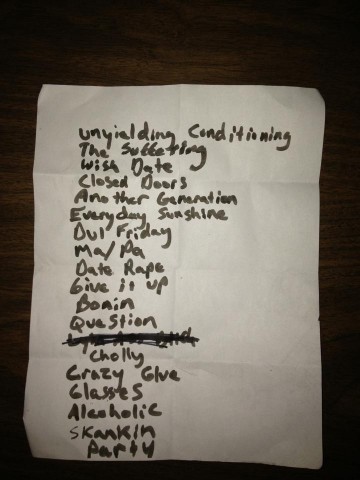 Unyielding Conditioning
The Suffering
Wish Date
Closed Doors
Another Generation
Everyday Sunshine
Dul Friday
Ma/Pa
Date Rape
Give it up
Bonin
Question
Cholly
Crazy Glue
Glasses
Alcoholic
Skankin
Party